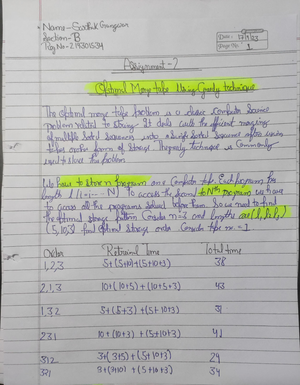 Name-Sarthak Gangwar
Section-B
Reg No-219301534
Date:
Page No. 1
Assignment-2
Optimal Merge tape Using Greedy technique
The optimal merge tape problem is a classic Computer Science
problem related to storage. It deals with the efficient merging
of multiple sorted sequences into a single sorted sequence often using
tapes as the form of storage. The greedy technique is commonly
used to solve this problem
We have to store n programs on a Computer tape. Each program has
length
to access all the programs stored before them. So we need to find
the optimal storage pattern Consider n=3 and lengths are
(5,10,3) find optimal storage order Consider tape m=1
Order Retrieval Time Total time
1,2,3 5+(5+10)+(5+10+3) 38
2,1,3 10+(10+5)+(10+5+3) 43
1,3,2 5+(5+3)+(5+10+3) 31
2,3,1 10+(10+3)+(5+10+3) 41
3,1,2 3+(3+5)+(5+10+3) 29
3,2,1 3+(3+10)+(5+10+3) 34